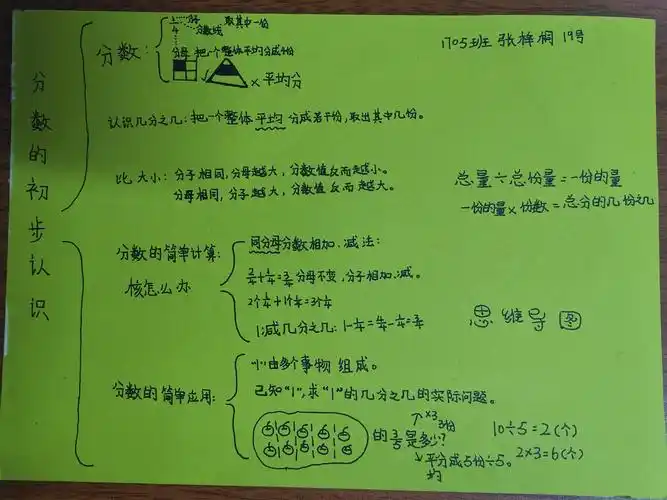 分数的初步认识
1705班 张梓桐 19号
分数:
1/4
分子 取其中一份
分数线
分母 把一个整体平均分成4份
× 平均分
认识几分之几:把一个整体平均分成若干份,取出其中几份。
比大小:分子相同,分母越大,分数值反而越小。
分母相同,分子越大,分数值反而越大。
总量÷总份量=一份的量
一份的量×份数=总分的几份之几
分数的简单计算:
核怎么办
同分母分数相加、减法:
2/4+1/4=3/4 分母不变,分子相加.减。
2个1/4+1个1/4=3个1/4
1减几分之几:1-1/4=4/4-1/4=3/4
思维导图
分数的简单应用:
小由多个事物组成。
已知“1”,求“1”的几分之几的实际问题。
的3/5是多少?
↑×3 3份
↓平分成5份÷5。
均
10÷5=2(个)
2×3=6(个)